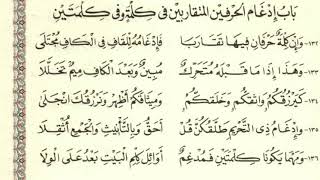 بَابُ إِدْغَامِ الْحَرْفَيْنِ الْمُتَقَارِبَيْنِ فِي كِلْمَةٍ وَفِي كِلْمَتَيْنِ
١٣٢- وَإِنْ كِلْمَةٌ حَرْفَانِ فِيهَا تَقَارَبَا فَإِدْغَامُهُ لِلْقَافِ فِي الْكَافِ مُجْتَلَى
١٣٣- وَهَذَا إِذَا مَا قَبْلَهُ مُتَحَرِّكٌ مُبِينٌ وَبَعْدَ الْكَافِ مِيمٌ تَخَلَّلَا
١٣٤- كَيَرْزُقْكُمُ وَاثَقْكُمُ وَخَلَقْكُمُ وَمِيثَاقَكُمْ أَظْهِرْ وَنَرْزُقُكَ انْجَلَى
١٣٥- وَإِدْغَامُ ذِي التَّحْرِيمِ طَلَّقَكُنَّ قُلْ أَحَقُّ وَبِالتَّأْنِيثِ وَالْجَمْعِ أُثْقِلَا
١٣٦- وَمَهْمَا يَكُونَا كِلْمَتَيْنِ فَمُدْغِمٌ أَوَائِلَ كِلْمِ الْبَيْتِ بَعْدُ عَلَى الْوِلَا